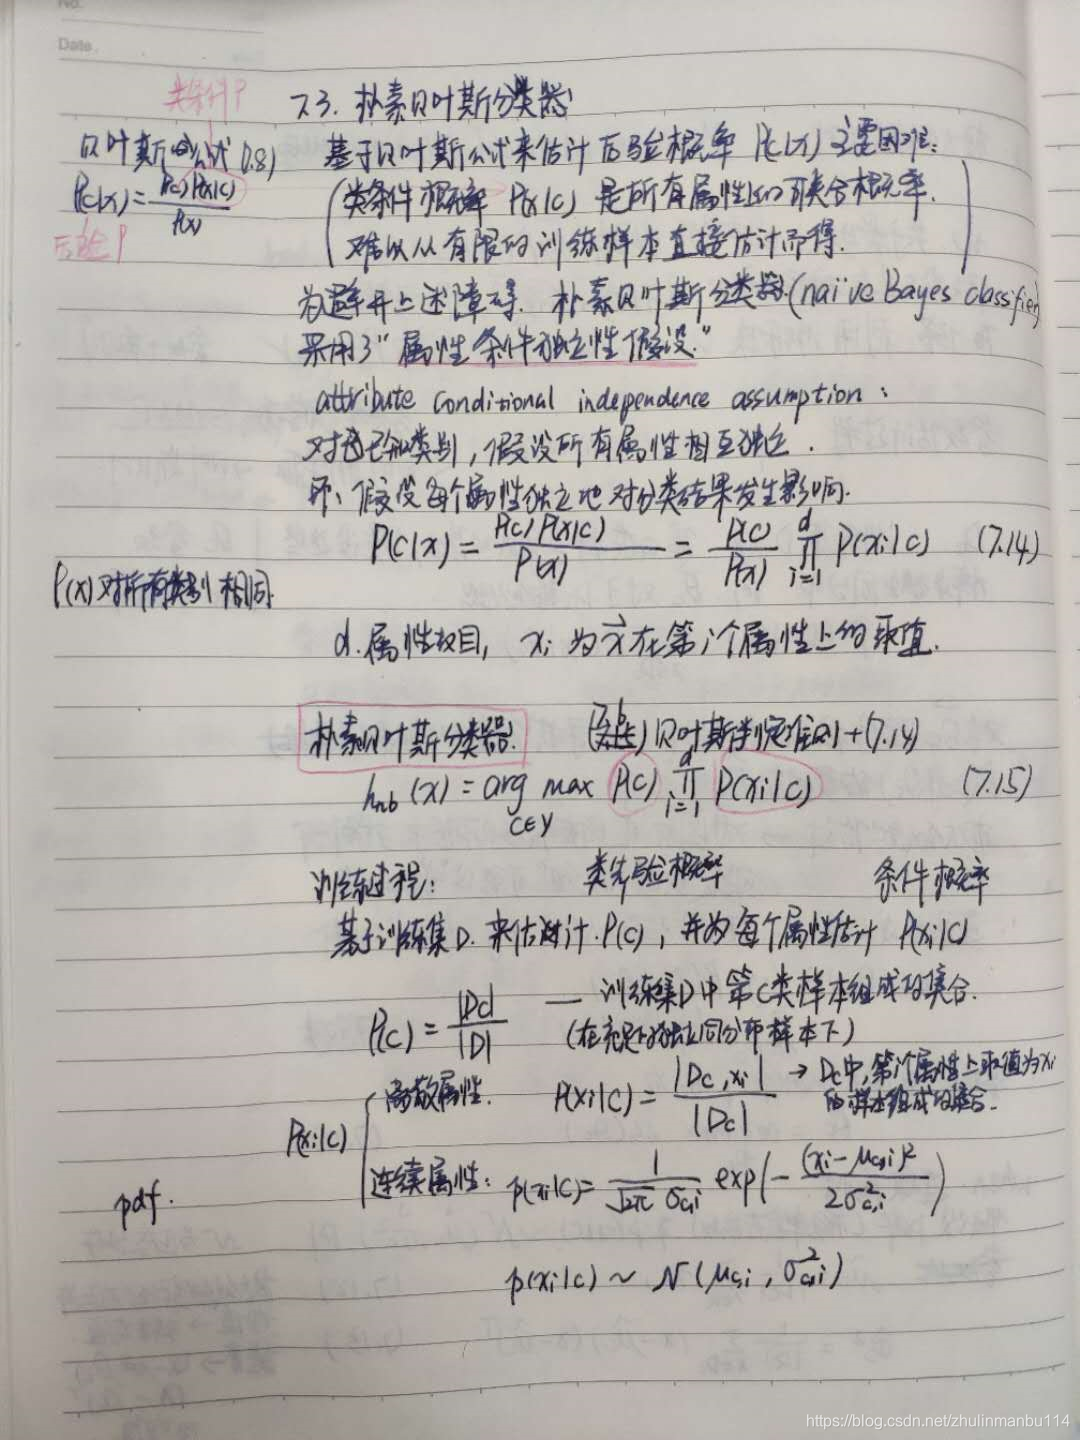 No.
Date.
类条件P
7.3. 朴素贝叶斯分类器
贝叶斯公式 (7.8)
P(c|x) = P(c) P(x|c) / P(x)
后验P
基于贝叶斯公式来估计后验概率 P(c|x) 主要困难:
(类条件概率 P(x|c) 是所有属性上的联合概率.
难以从有限的训练样本直接估计而得.)
为避开上述障碍. 朴素贝叶斯分类器(naïve Bayes classifier)
采用了"属性条件独立性假设."
attribute conditional independence assumption:
对已知类别, 假设所有属性相互独立.
即、假设每个属性独立地对分类结果发生影响.
P(c|x) = P(c) P(x|c) / P(x) = P(c) / P(x) ∏_{i=1}^{d} P(xi|c) (7.14)
P(x)对所有类别相同
d.属性数目, xi 为 x⃗ 在第i个属性上的取值.
朴素贝叶斯分类器.
贝叶斯判定准则+(7.14)
h_nb(x) = arg max_{c∈y} P(c) ∏_{i=1}^{d} P(xi|c) (7.15)
训练过程: 类先验概率 条件概率
基于训练集D. 来估计.P(c), 并为每个属性估计 P(xi|c)
P(c) = |Dc| / |D| — 训练集D中第C类样本组成的集合.
(在充足的独立同分布样本下)
P(xi|c)
离散属性. P(xi|c) = |Dc,xi| / |Dc| → Dc中,第i个属性上取值为xi
的样本组成的集合.
连续属性: p(xi|c) = 1 / (√2π σc,i) exp(- (xi-μc,i)² / 2σ²c,i)
pdf.
p(xi|c) ~ N(μc,i, σ²c,i)
https://blog.csdn.net/zhulinmanbu114